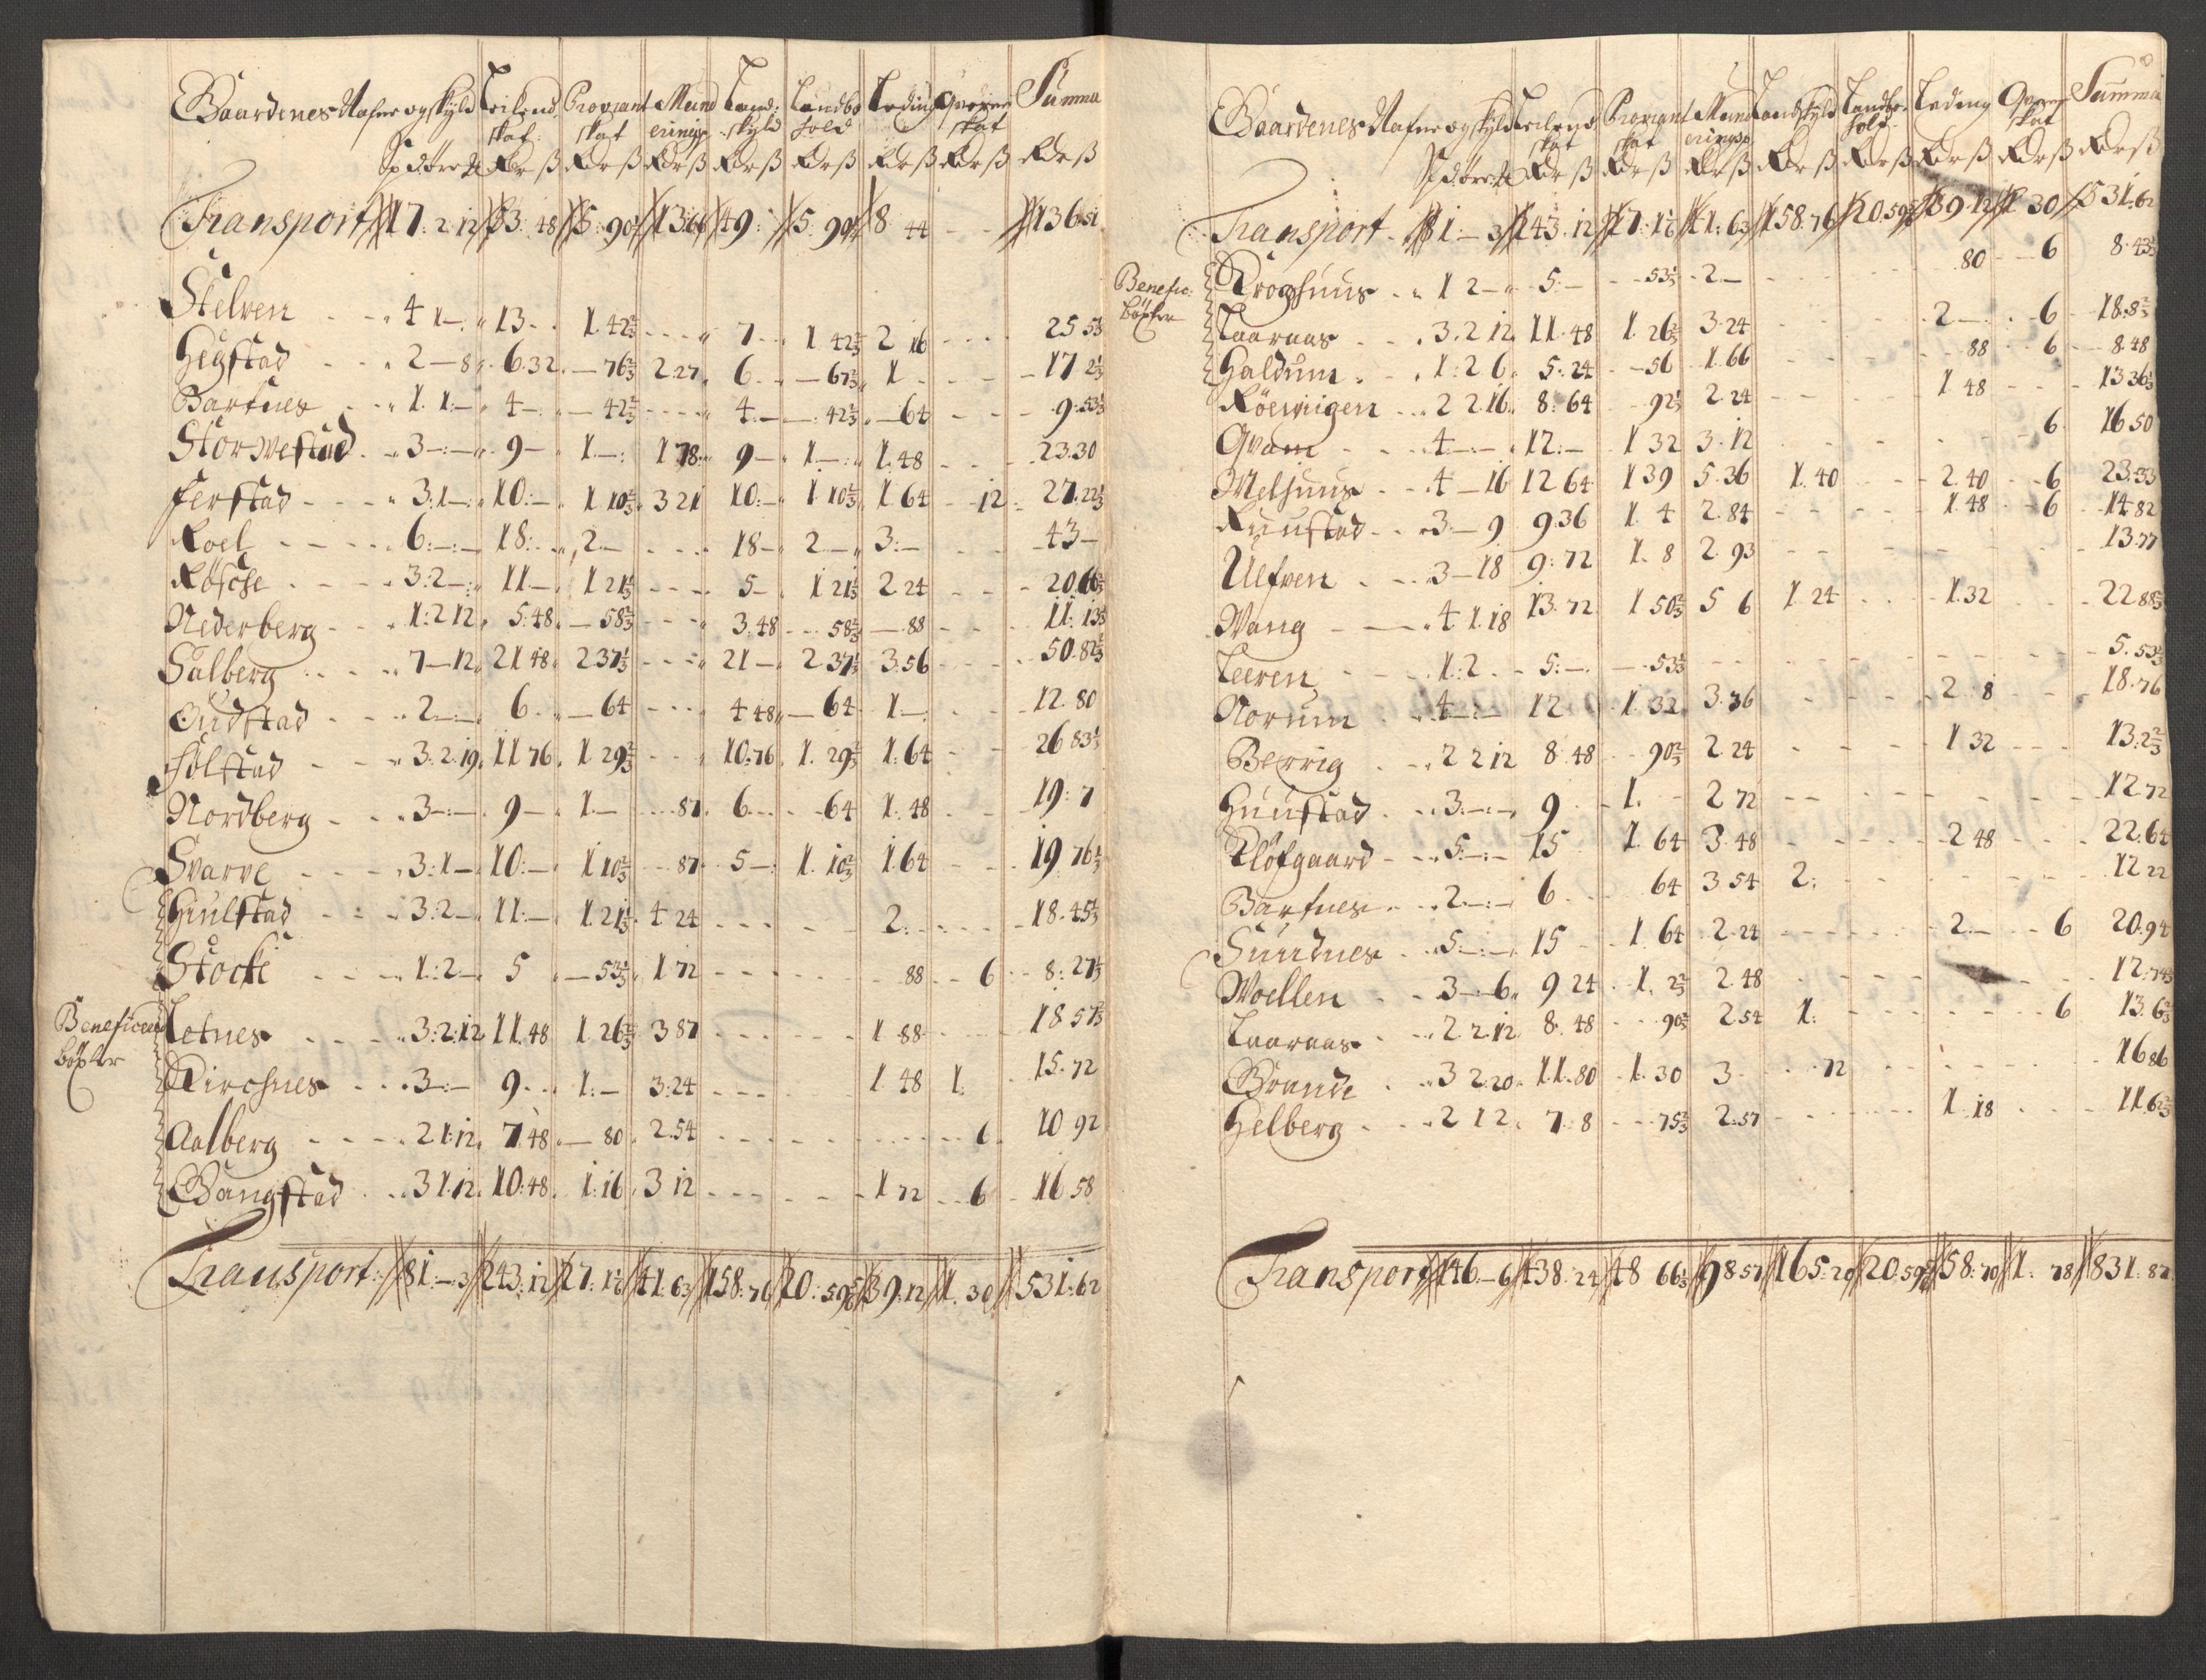 Gaardenes Nafne og skyld Leilend. Proviant Mund Land: Landbo Leding Qværne Summa
skat skat erings skyld hold skat
Sp d: öre Rdr ß Rdr ß Rdr ß Rdr ß Rdr ß Rdr ß Rdr ß Rdr ß
Transport 17:2:12 53:48 5:90 13:66 49: 5:90 8 44 - - 136:51
Stelven - - 4 1-: 13- - 1.42⅔ - - - 7 - 1 42⅔ 2 16 - - - 25 53
Hegstad - - 2-8 6.32 -76⅔ 2.27 6 - -67⅔ 1 - - - 17 2⅓
Bartnes - - 1.1:- 4- -42⅔ - - - 4.- -.42⅔ -64 - - - 9:53⅓
Storwestad - 3-:- 9- 1-: 1 78 9- 1-: 1.48 - - - 23.30
Ferstad - - - 3:1- 10:- 1 10⅔ 3 21 10:- 1 10⅔ 1 64 - 12 - 27.22⅓
Roel - - - 6:-:- 18:- 2.- - - - 18- 2.- 3:- - - 43-
Röske - - - 3:2- 11- 1 21⅓ - - - 5- 1 21⅓ 2 24 - - - 20.66⅔
Nederberg - - 1:2 12 5:48 -58⅔ - - - 3.48 - 58⅔ -88 - - - 11:13⅓
Salberg - - - 7-12 21 48 2 37⅓ - - - 21- 2.37⅓ 3.56 - - - 50.82⅔
Gudstad - - - 2-:- 6- -64 - - - 4 48 -64 1-: - - 12.80
Folstad - - - 3.2.19 11 76 1 29⅔ - - 10:76 1.29⅔ 1:64 - - 26 83⅓
Nordberg - - 3-:- 9- 1- - 87 6- - -64 1:48 - - 19:7
Svarve - - - 3:1- 10:- 1 10⅔ - 87 5-: 1.10⅔ 1.64 - - - 19 76⅓
Hiulstad - - - 3:2- 11:- 1.21⅓ 4 24 - - - - - 2: - - - 18.45⅓
Stocke - - - 1:2- 5 -53⅓ 1 72 - - - - - 88 - 6 - 8:27⅓
Beneficered
böxler
Letnes - - - 3:2:12 11.48 1.26⅔ 3 87 - - - - - 1 88 - - 18 57⅔
Kircsnes - - 3-:- 9- 1:- 3:24 - - - - 1 48 1. - 15.72
Aalberg - - - 2 1:12 7:48 -80 2.54 - - - - - - 6 10 92
Bangstad - - 3 1:12 10:48 1:16 3 12 - - - - 1 72 - 6 - 16 58
Transport: 81:-3 243:12 27:16 41:63 158:76 20:59⅔ 39:12 1.30 531:62
Gaardenes Nafne og skyld Leilend Proviant Mund Landskyld Landbo Leding Qværne Summa
skat skat erings hold skat
Sp d: öre Rdr ß Rdr ß Rdr ß Rdr ß Rdr ß Rdr ß Rdr ß Rdr ß
Transport - 81:-3 243:12 27:16 41:63 158:76 20:59⅔ 39:12 1 30 531:62
Benefic:
böxler
Krogshuus - 1 2- 5:- - 53⅓ - 2- - - - - 80 - 6 8.43⅓
Laaraas - - 3.2 12 11.48 1.26⅔ 3.24 - - - - 2- - 6 18:8⅔
Haldum - - 1:2 6 5:24 - 56 1.66 - - - - 88 - 6 - 8.48
Röewiigen - - 2 2.16 8:64 - 92⅓ 2.24 - - - - 1 48 - - - 13 36⅓
Qvam - - 4-:- 12:- 1 32 3.12 - - - - - 6 16 50
Meljuus - - 4-16 12 64 1 39 5.36 1.40 - - 2.40 - 6 23:33
Ruustad - - 3-9 9.36 1.4 2.84 - - - - 1.48 - 6 14.82
Ulfven - - 3-18 9:72 1.8 2.93 - - - - - - 13.77
Wang - - 4 1.18 13.72 1 50⅔ 5 6 1 24 - - 1.32 - - 22 88⅔
Leeren - - 1:2- 5:- -53⅓ - - - - - - - 5.53⅓
Norum - - 4-:- 12 1.32 3.36 - - - - 2.8 - - - 18.76
Berrig - - 2 2 12 8.48 - 90⅔ 2 24 - - - - 1 32 - - 13:2⅔
Huustad - - 3-:- 9 - 1. - 2 72 - - - - - - - 12.72
Klöfgaard - - 5-:- 15 1.64 3.48 - - - - 2 48 - - - 22.64
Bartnes - - 2-:- 6 - - 64 3 54 2: - - - - - 12 22
Sundnes - - 5-:- 15 - - 1.64 2.24 - - - - 2.- - 6 20.94
Woellen - - 3-6 9 24 - 1.2⅔ 2.48 - - - - - - 12.74⅔
Laaraas - - 2 2.12 8.48 - 90⅔ 2 54 1: - - - - 6 13.6⅔
Brande - - 3 2:20 11.80 1.30 3 - - 72 - - - - 16 86
Helberg - - 2 1 2 7:8 - 75⅔ 2.57 - - - - 1.18 - - - 11.62⅔
Transport 146:-6 438.24 48 66⅓ 98 57 165:20 20.59⅔ 58:70 1.78 831.87